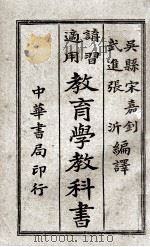 吳縣宋嘉釗
武進張沂編譯
講習
適用
教育學教科書
中華書局印行